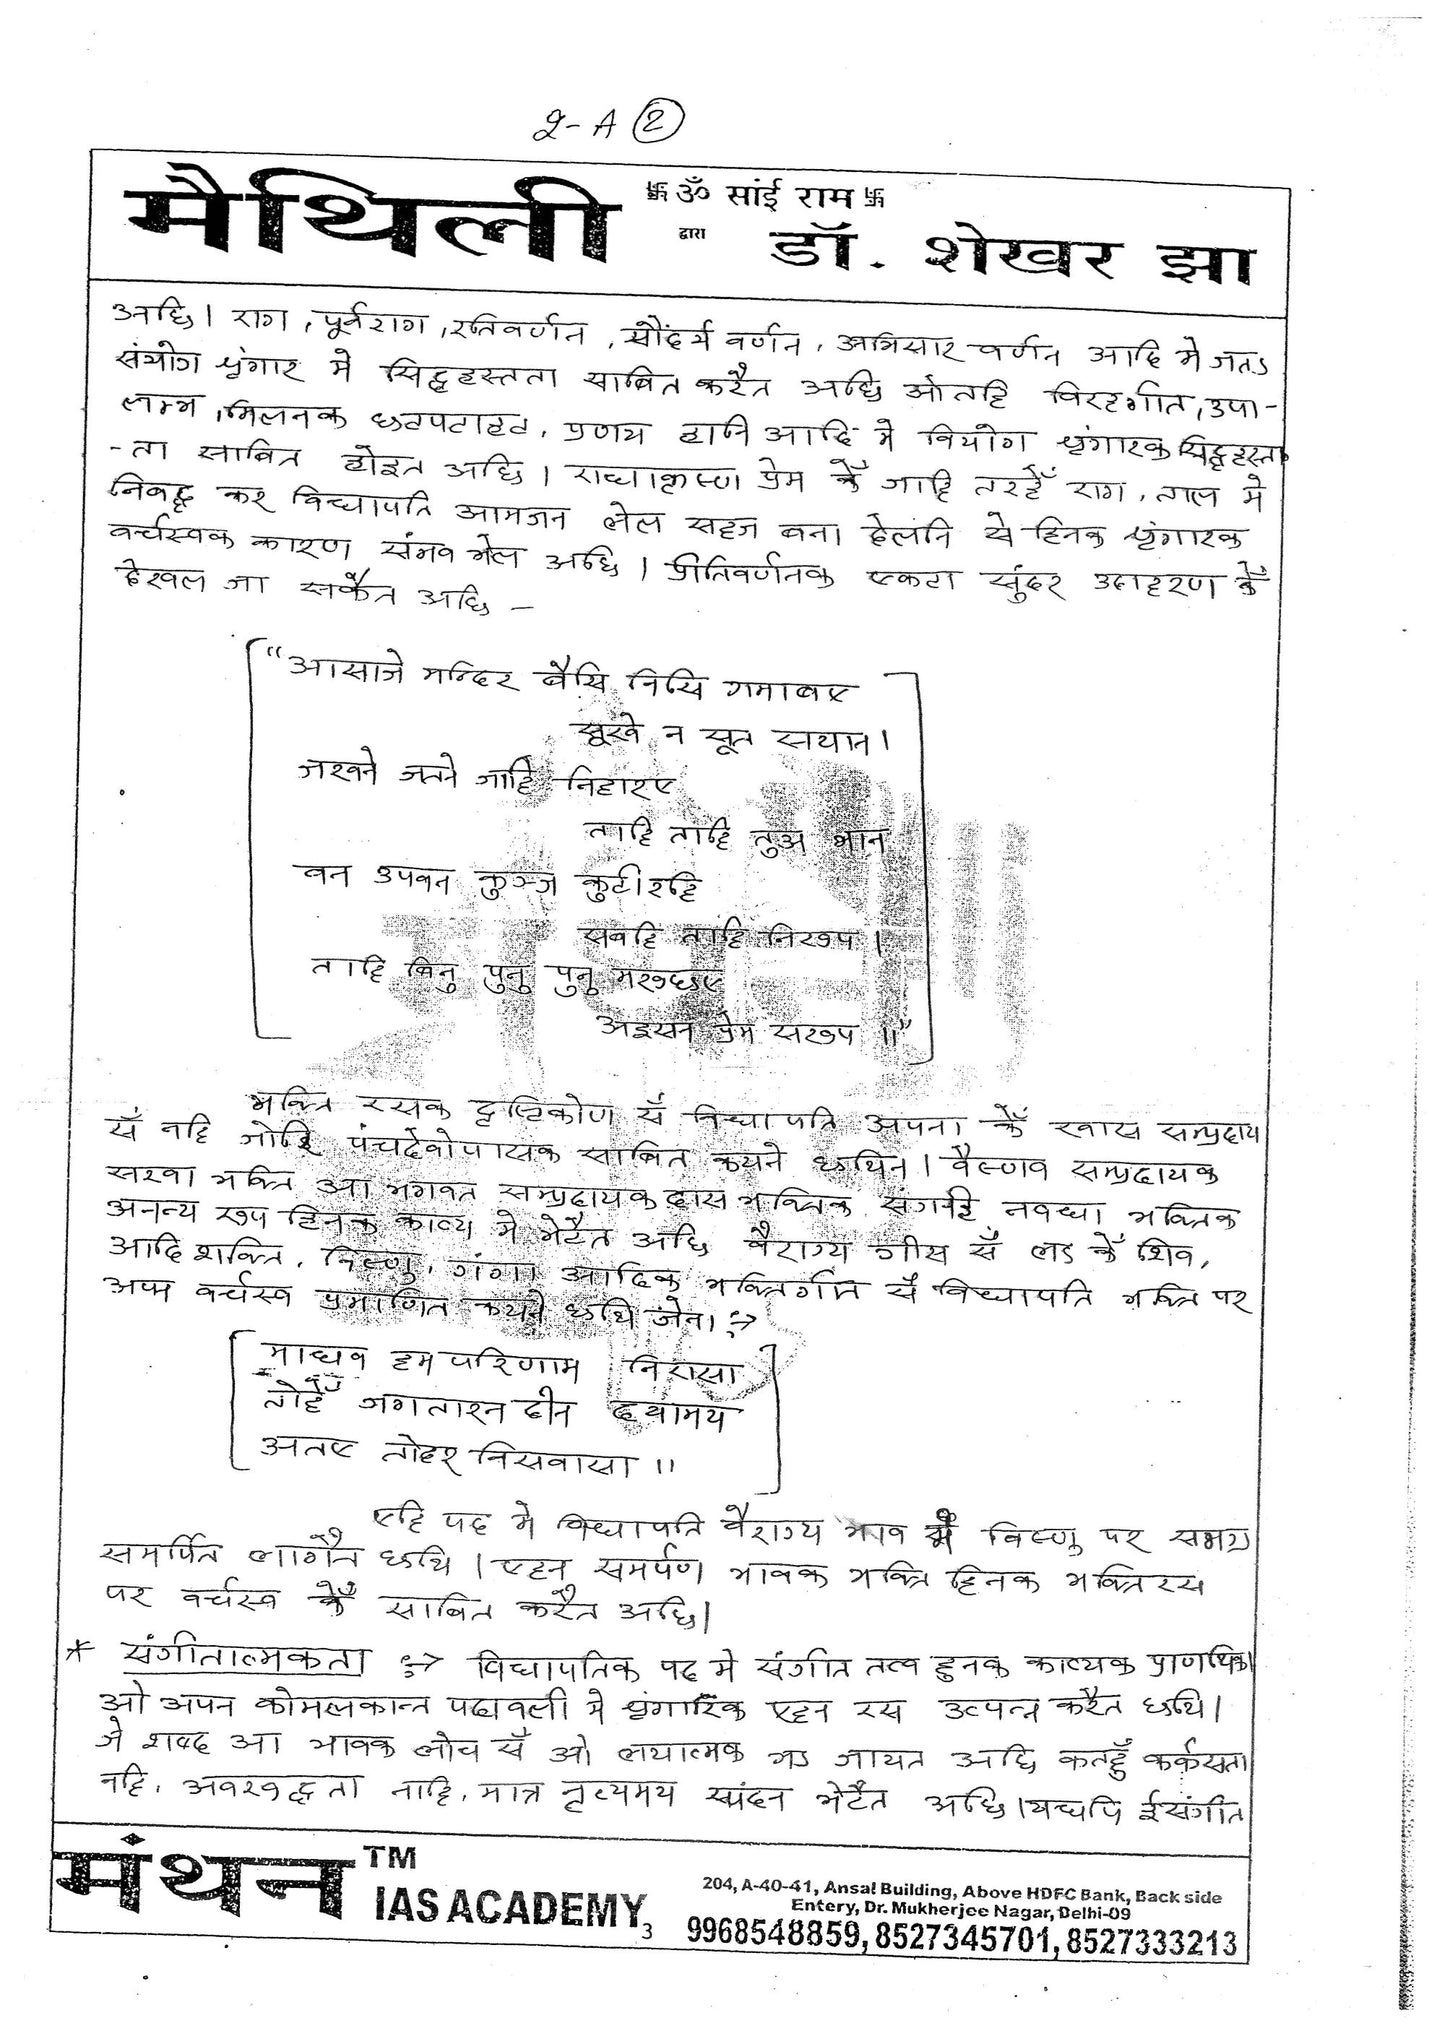 2-A ②
मैथिली
卐 ॐ सांई राम 卐
द्वारा
डॉ. शेखर झा
अछि। राग, पूर्वराग, रतिवर्णन, सौंदर्य वर्णन, अभिसार वर्णन आदि मे जतऽ
संयोग श्रृंगार मे सिद्धहस्तता साबित करैत अछि ओतहि विरहगीत, उपा-
लम्भ, मिलनक छटपटाहट, प्रणय हानि आदि मे वियोग श्रृंगारक सिद्धहस्त
-ता साबित होइत अछि। राधाकृष्ण प्रेम कें जाहि तरहेँ राग, ताल मे
निबद्ध कर विद्यापति आमजन लेल सहज बना देलनि से हिनक श्रृंगारक
वर्चस्वक कारण संभव भेल अछि। प्रीतिवर्णनक एकटा सुंदर उदाहरण कें
देखल जा सकैत अछि –
"आसाजे मन्दिर बैसि निसि गमाबए
सूखे न सूत सयान।
जखने जतने जाहि निहारए
ताहि ताहि तुअ भान
वन उपवन कुञ्ज कुटीरहि
सबहि ताहि निरुप।
ताहि बिनु पुनु पुनु मरुछए
अइसन प्रेम सरुप॥"
भक्ति रसक दृष्टिकोण सँ विद्यापति अपना कें खास सम्प्रदाय
सँ नहि जोडि पंचदेवोपासक साबित कयने छथिन। वैष्णव सम्प्रदायक
सखा भक्ति आ भगवत सम्प्रदायक दास भक्तिक संगहि नवधा भक्तिक
अनन्य रुप हिनक काव्य मे भेटैत अछि वैराग्य गीस सँ लऽ कें शिव,
आदि शक्ति, विष्णु, गंगा आदिक भक्तिगीत सँ विद्यापति भक्ति पर
अपन वर्चस्व प्रमाणित कयने छथि जेना :→
माधव हम परिणाम निरासा
तोहेँ जगतारन दीन दयामय
अतए तोहर विसवासा॥
एहि पद मे विद्यापति वैराग्य भाव सँ विष्णु पर समग्र
समर्पित लागैत छथि। एहन समर्पण भावक भक्ति हिनक भक्तिरस
पर वर्चस्व कें साबित करैत अछि।
* संगीतात्मकता :→ विद्यापतिक पद मे संगीत तत्व हुनक काव्यक प्राणथिक।
ओ अपन कोमलकान्त पदावली मे श्रृंगारिक एहन रस उत्पन्न करैत छथि।
जे शब्द आ भावक लोच सँ ओ लयात्मक भऽ जायत अछि कतहुँ कर्कसता
नहि, अवरुद्धता नाहि, मात्र नृत्यमय स्पंदन भेटैत अछि। यद्यपि ई संगीत
मंथन TM
IAS ACADEMY
3
204, A-40-41, Ansal Building, Above HDFC Bank, Back side
Entery, Dr. Mukherjee Nagar, Delhi-09
9968548859, 8527345701, 8527333213